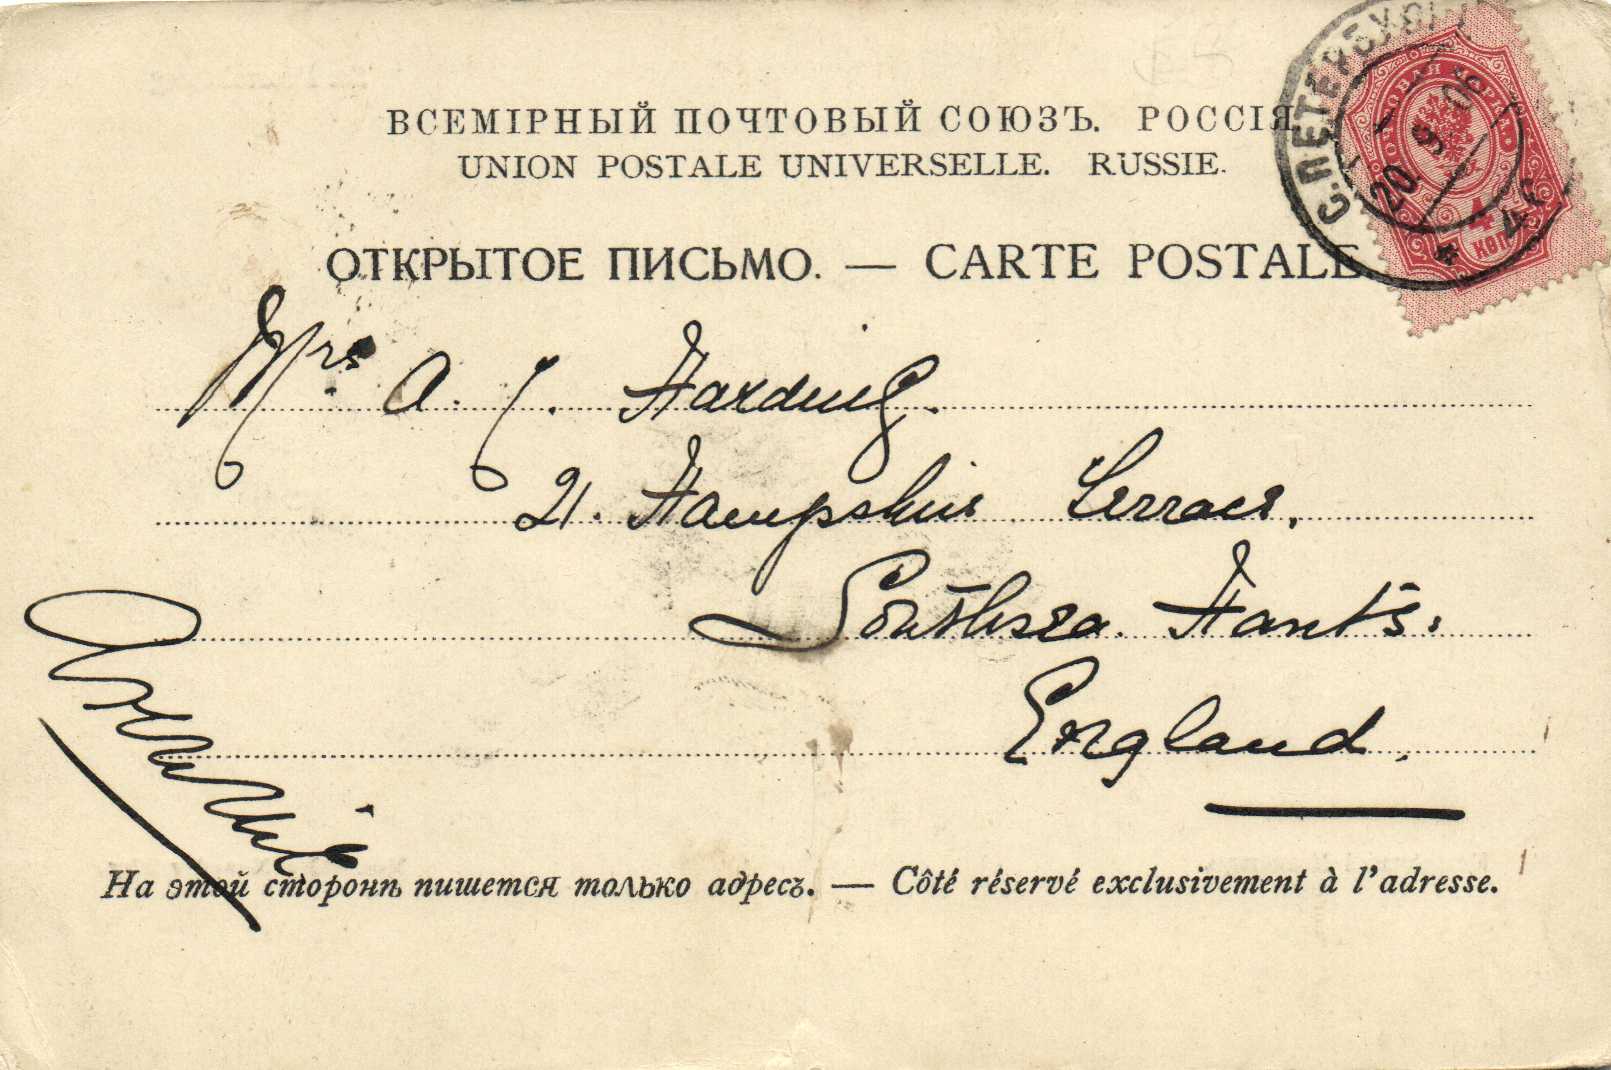 ВСЕМІРНЫЙ ПОЧТОВЫЙ СОЮЗЪ. РОССІЯ
UNION POSTALE UNIVERSELLE. RUSSIE.
ОТКРЫТОЕ ПИСЬМО. — CARTE POSTALE
С.ПЕТЕРБУРГ
20 9 06
ПОЧТОВАЯ МАРКА
4
КОП
Mrs A. J. Harding.
21. Hampshire Terrace.
Southsea. Hants.
England.
На этой сторонѣ пишется только адресъ. — Côté réservé exclusivement à l'adresse.